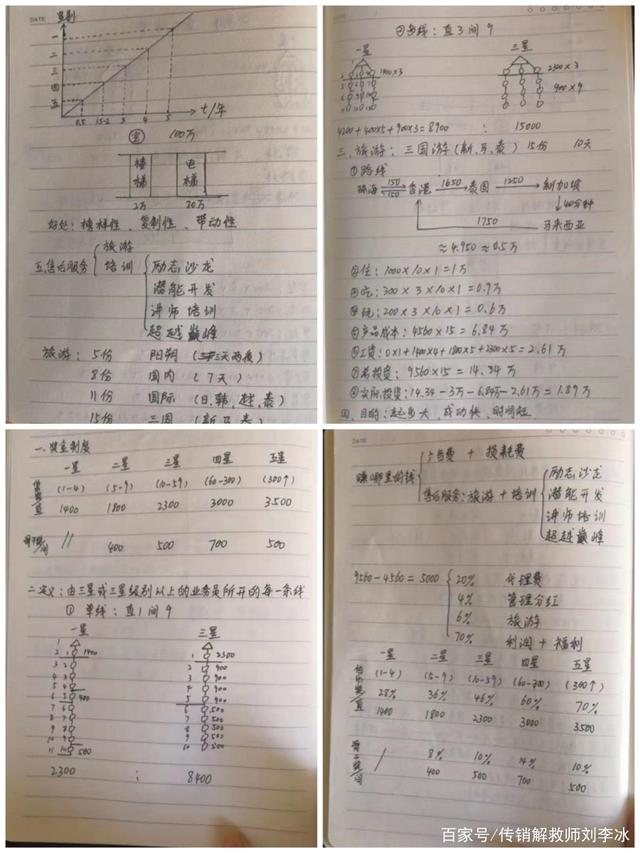 级别
一
二
三
四
五
0.5 1.5-2 3 4 5 t/年
100万
楼梯 电梯
2万 20万
好处：榜样性、复制性、带动性
五.售后服务
旅游
培训
励志沙龙
潜能开发
讲师培训
超越巅峰
旅游：5份 阳朔（三天两夜）
8份 国内（7天）
11份 国际（日、韩、越、泰）
15份 三国（新、马、泰）
DATE
②多线：直3间9
一星 三星
1400×3 2300×3
900×9
4200+400×5+900×3=8900 : 15000
三、旅游：三国游（新、马、泰）15份 10天
①路线
珠海 150 150 香港 1650 泰国 1250 新加坡
40分钟
1750 马来西亚
≈4.950≈0.5万
②住：1000×10×1=1万
③吃：300×3×10×1=0.9万
④玩：200×3×10×1=0.6万
⑤产品成本：4560×15=6.84万
⑥工资：0×1+1400×4+1800×5+2300×5=2.61万
⑦总投资：9560×15=14.34万
⑧实际投资：14.34-3万-6.84万-2.61万=1.89万
四、目的：起步大、成功快、时间短
一.奖金制度
一星 二星 三星 四星 五星
(1-4) (5-9) (10-59) (60-300) (300个)
直 1400 1800 2300 3000 3500
间 // 400 500 700 500
二.定义：由三星或三星级别以上的业务员所开的每一条线
① 单线：直1间9
一星 三星
1
2 1 1400 1 2300
3 2 2 900
4 3 3 900
5 4 4 900
6 5 400 5 900
7 6 6 500
8 7 7 500
9 8 8 500
10 9 9 500
11 10 500 10 500
2300 : 8400
DATE
赚哪里的钱
广告费+损耗费
售后服务：旅游+培训
励志沙龙
潜能开发
讲师培训
超越巅峰
9560-4560=5000
20% 代理费
4% 管理分红
6% 旅游
70% 利润+福利
一星 二星 三星 四星 五星
(1-4) (5-9) (10-59) (60-300) (300个)
28% 36% 46% 60% 70%
直 1400 1800 2300 3000 3500
/ 8% 10% 14% 10%
间 400 500 700 500
百家号/传销解救师刘李冰